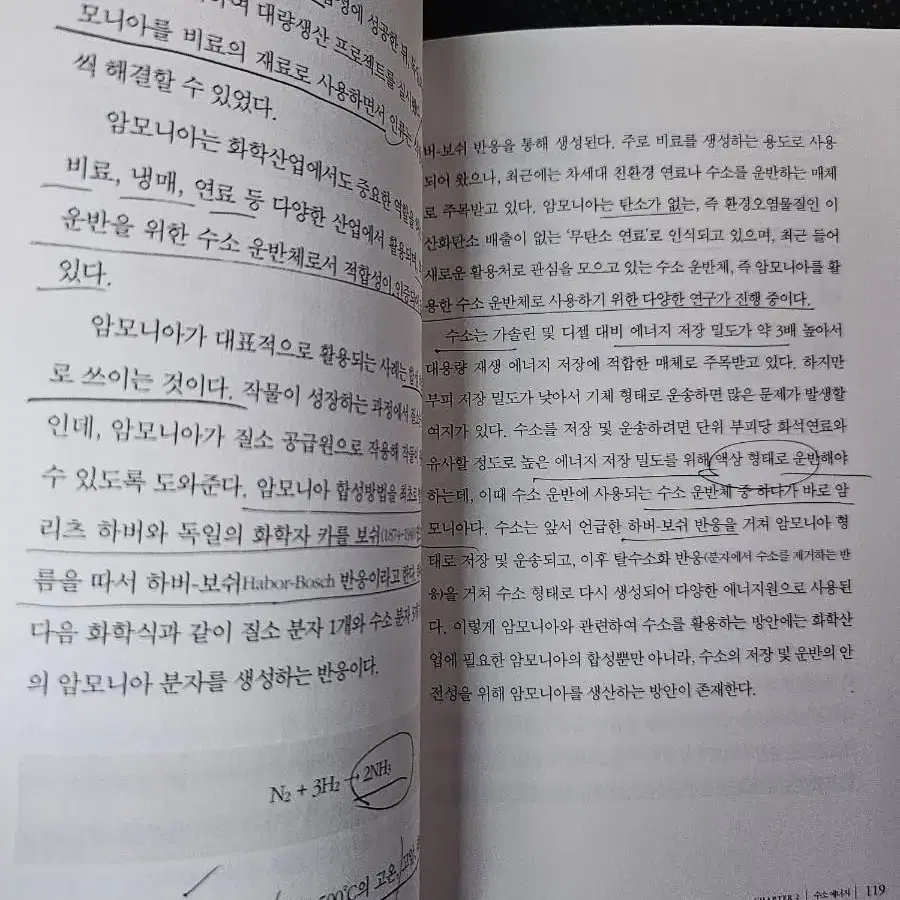 여 대량생산 프로젝트를
모니아를 비료의 재료로 사용하면서 인류는
씩 해결할 수 있었다.
암모니아는 화학산업에서도 중요한 역할을
비료, 냉매, 연료 등 다양한 산업에서 활용되며,
운반을 위한 수소 운반체로서 적합성이
있다.
암모니아가 대표적으로 활용되는 사례는
로 쓰이는 것이다. 작물이 성장하는 과정에서
인데, 암모니아가 질소 공급원으로 작용해
수 있도록 도와준다. 암모니아 합성방법을 최초로
리츠 하버와 독일의 화학자 카를 보쉬(1874-1940)
름을 따서 하버-보쉬Habor-Bosch 반응이라고
다음 화학식과 같이 질소 분자 1개와 수소 분자
의 암모니아 분자를 생성하는 반응이다.
N₂ + 3H₂ → 2NH₃
500℃의 고온,
버-보쉬 반응을 통해 생성된다. 주로 비료를 생성하는 용도로 사용
되어 왔으나, 최근에는 차세대 친환경 연료나 수소를 운반하는 매체
로 주목받고 있다. 암모니아는 탄소가 없는, 즉 환경오염물질인 이
산화탄소 배출이 없는 ‘무탄소 연료’로 인식되고 있으며, 최근 들어
새로운 활용처로 관심을 모으고 있는 수소 운반체, 즉 암모니아를 활
용한 수소 운반체로 사용하기 위한 다양한 연구가 진행 중이다.
수소는 가솔린 및 디젤 대비 에너지 저장 밀도가 약 3배 높아서
대용량 재생 에너지 저장에 적합한 매체로 주목받고 있다. 하지만
부피 저장 밀도가 낮아서 기체 형태로 운송하면 많은 문제가 발생할
여지가 있다. 수소를 저장 및 운송하려면 단위 부피당 화석연료와
유사할 정도로 높은 에너지 저장 밀도를 위해 액상 형태로 운반해야
하는데, 이때 수소 운반에 사용되는 수소 운반체 중 하나가 바로 암
모니아다. 수소는 앞서 언급한 하버-보쉬 반응을 거쳐 암모니아 형
태로 저장 및 운송되고, 이후 탈수소화 반응(분자에서 수소를 제거하는 반
응)을 거쳐 수소 형태로 다시 생성되어 다양한 에너지원으로 사용된
다. 이렇게 암모니아와 관련하여 수소를 활용하는 방안에는 화학산
업에 필요한 암모니아의 합성뿐만 아니라, 수소의 저장 및 운반의 안
전성을 위해 암모니아를 생산하는 방안이 존재한다.
CHAPTER 2 | 수소에너지 | 119